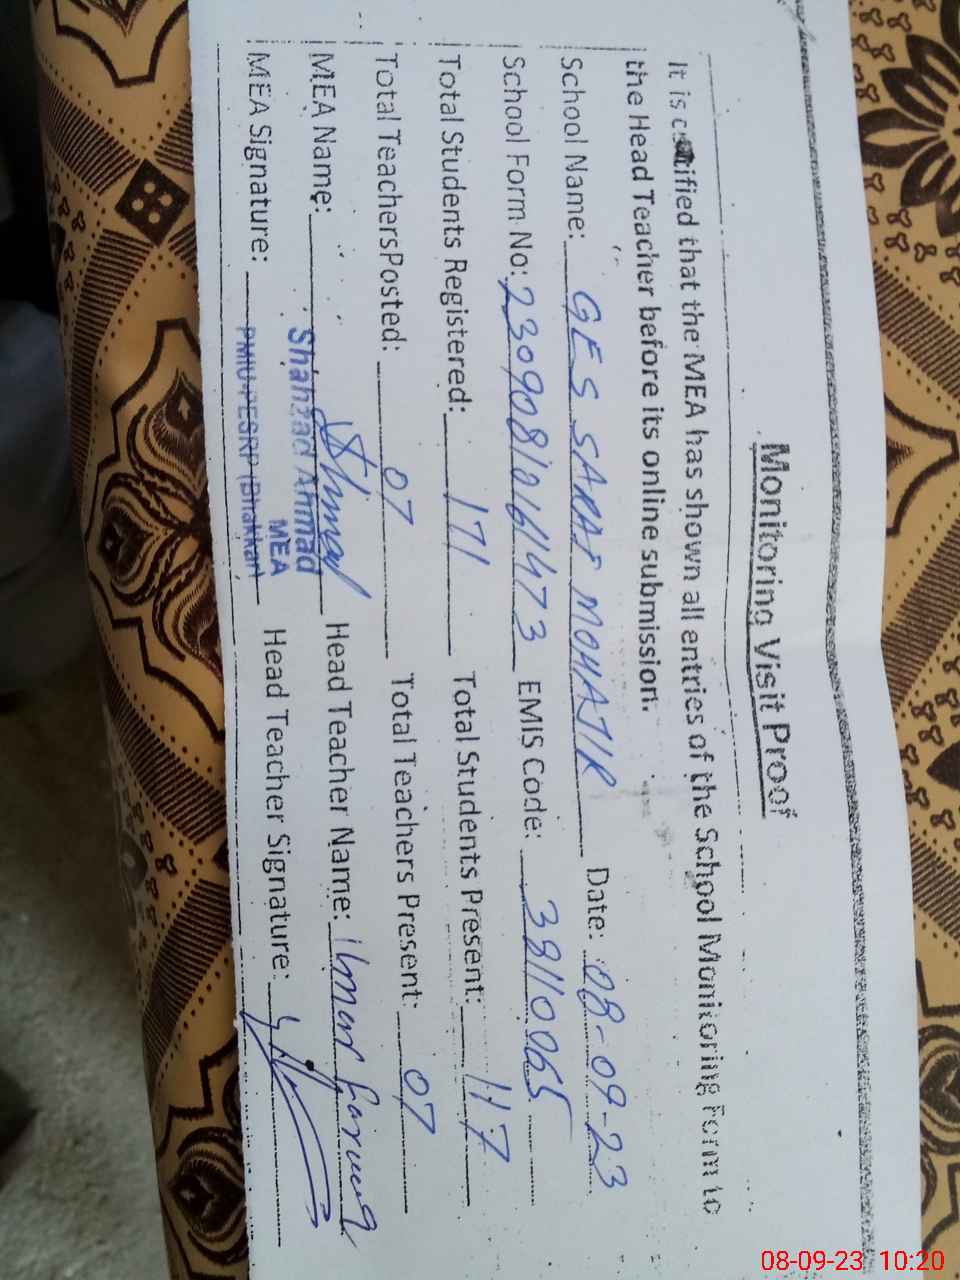 Monitoring Visit Proof
It is certified that the MEA has shown all entries of the School Monitoring Form to
the Head Teacher before its online submission.
School Name: GES SARAI MOHAJIR Date: 08-09-23
School Form No: 2309081061473 EMIS Code: 38110065
Total Students Registered: 171 Total Students Present: 117
Total Teachers Posted: 07 Total Teachers Present: 07
MEA Name: Head Teacher Name: Umer Farooq
Shahzad Ahmad
MEA Signature: Head Teacher Signature:
MEA
PMIU-PESRP (Bhakkar)
08-09-23 10:20